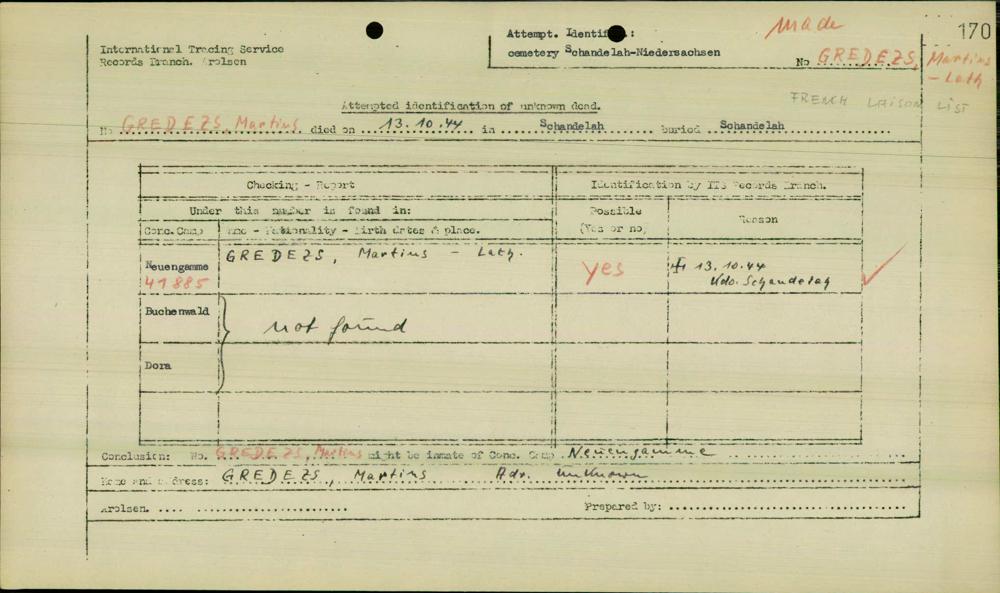 made
170
Attempt. Identif :
cemetery Schandelah-Niedersachsen
No GREDEZS, Martins
- Lath
International Tracing Service
Records Branch. Arolsen
FRENCH LAISON LIST
Attempted identification of unknown dead.
No GREDEZS, Martins died on 13.10.44 in Schandelah buried Schandelah
Checking - Report
Identification by ITS Records Branch.
Under this number is found in:
Possible
(Yes or no)
Reason
Conc.Camp
Name - Nationality - Birth dates & place.
Neuengamme
41885
GREDEZS, Martins - Lath.
yes
13.10.44
Kdo. Schandelah
Buchenwald
not found
Dora
Conclusion: No. GREDEZS, Martins might be inmate of Conc. Camp Neuengamme
Name and address: GREDEZS, Martins Adr. unknown
Arolsen.
Prepared by: